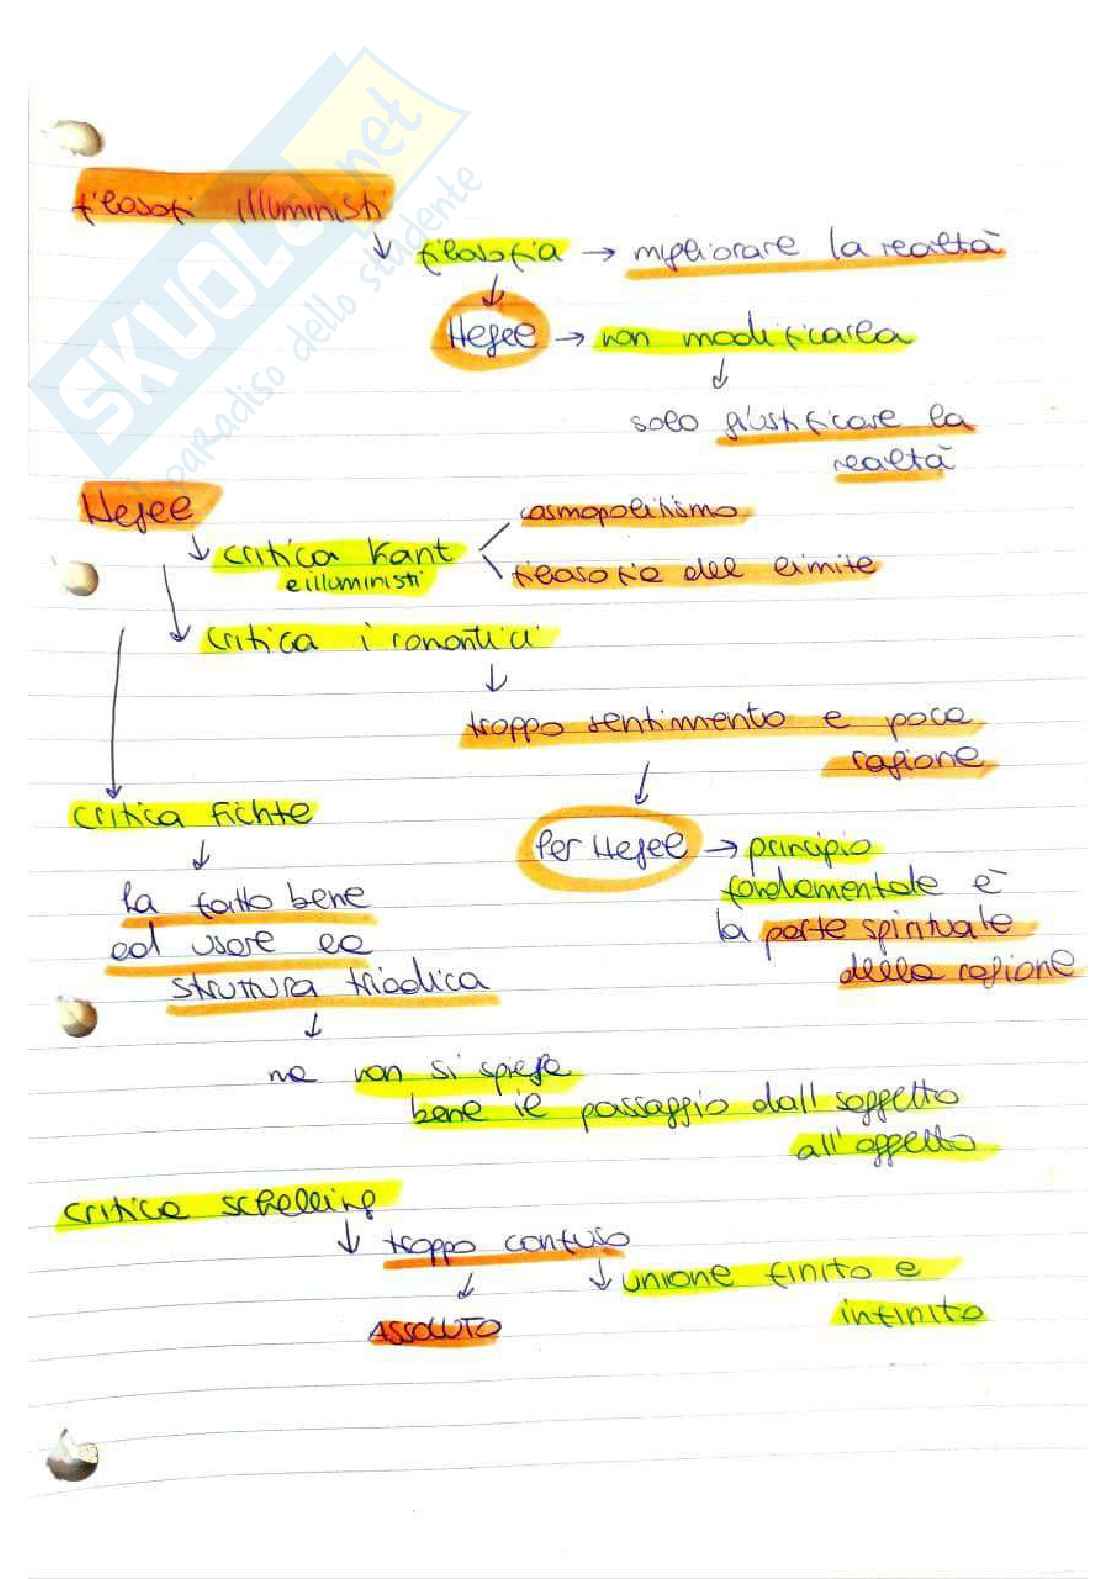 SKUOLA.net
paradiso dello studente
filosofi illuministi
↓ filosofia → migliorare la realtà
↓
Hegel → non modificarla
↓
solo giustificare la
realtà
Hegel
↓ critica Kant
e illuministi
cosmopolitismo
filosofia del limite
↓ critica i romantici
↓
troppo sentimento e poca
ragione
↓
critica Fichte
Per Hegel → principio
fondamentale è
la parte spirituale
della ragione
↓
ha fatto bene
ad usare la
struttura triadica
↓
ma non si spiega
bene il passaggio dall soggetto
all'oggetto
critica schelling
↓ troppo confuso
↓ ↓ unione finito e
infinito
ASSOLUTO